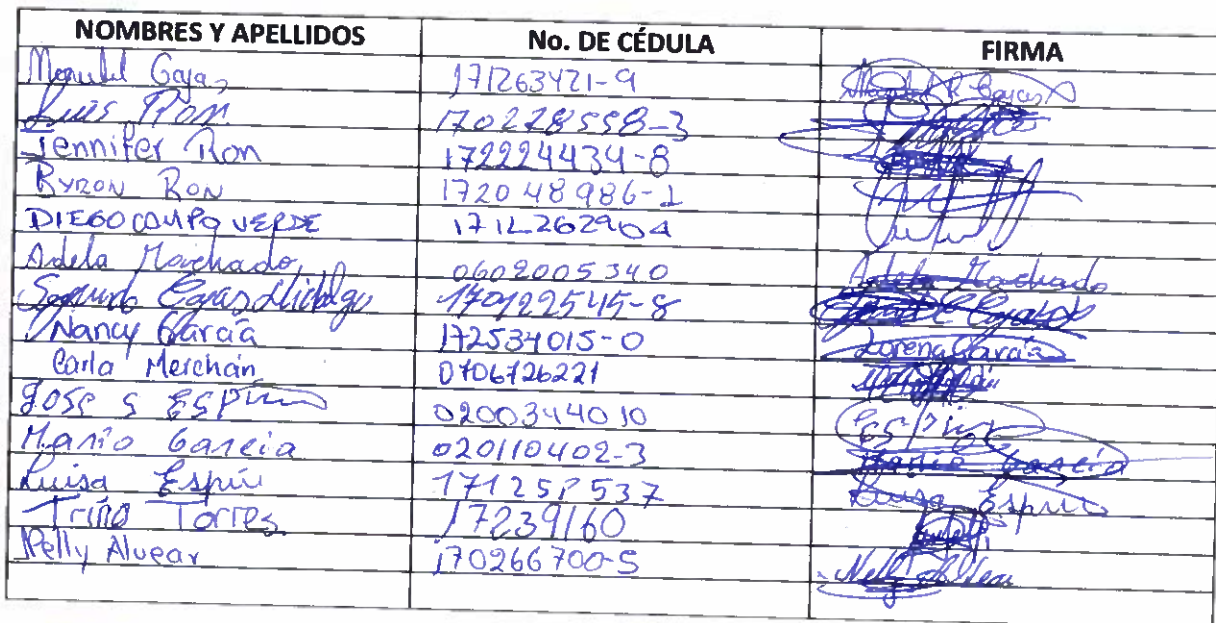 NOMBRES Y APELLIDOS No. DE CÉDULA FIRMA
171263421-9
Luis Ron 170228558-3
Jennifer Ron 172224434-8
Byron Ron 172048986-1
DIEGO CAMPOVERDE
Adela Machado 0602005340 Adela Machado
Segundo Hidalgo 170122545-8
Nancy García 172534015-0 Lorena García
Carla Merchán 0706726221
JOSE S ESPIN 0200344010 Espin
Mario Garcia 020110402-3 Mario Garcia
Luisa Espín Luisa Espín
Torres 17239160
Nelly Alvear 170266700-5 Nelly Alvear